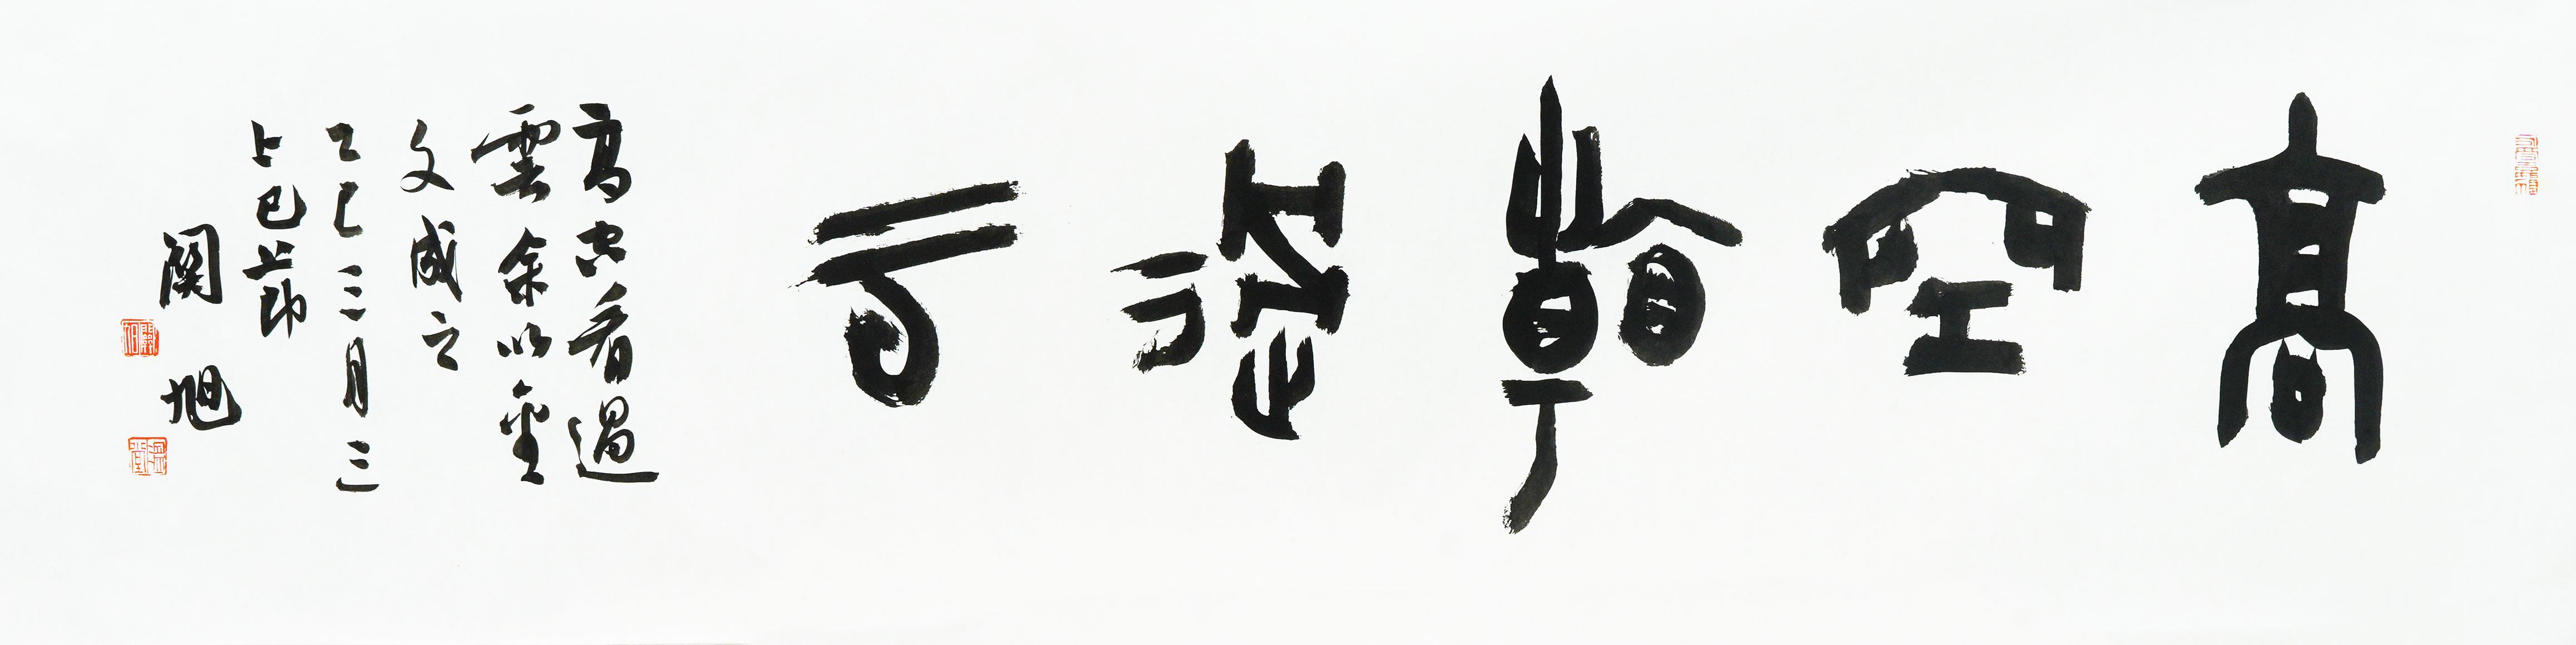 高空看過雲
高空看過
雲余以金
文成之
乙巳三月三
上巳節
關旭